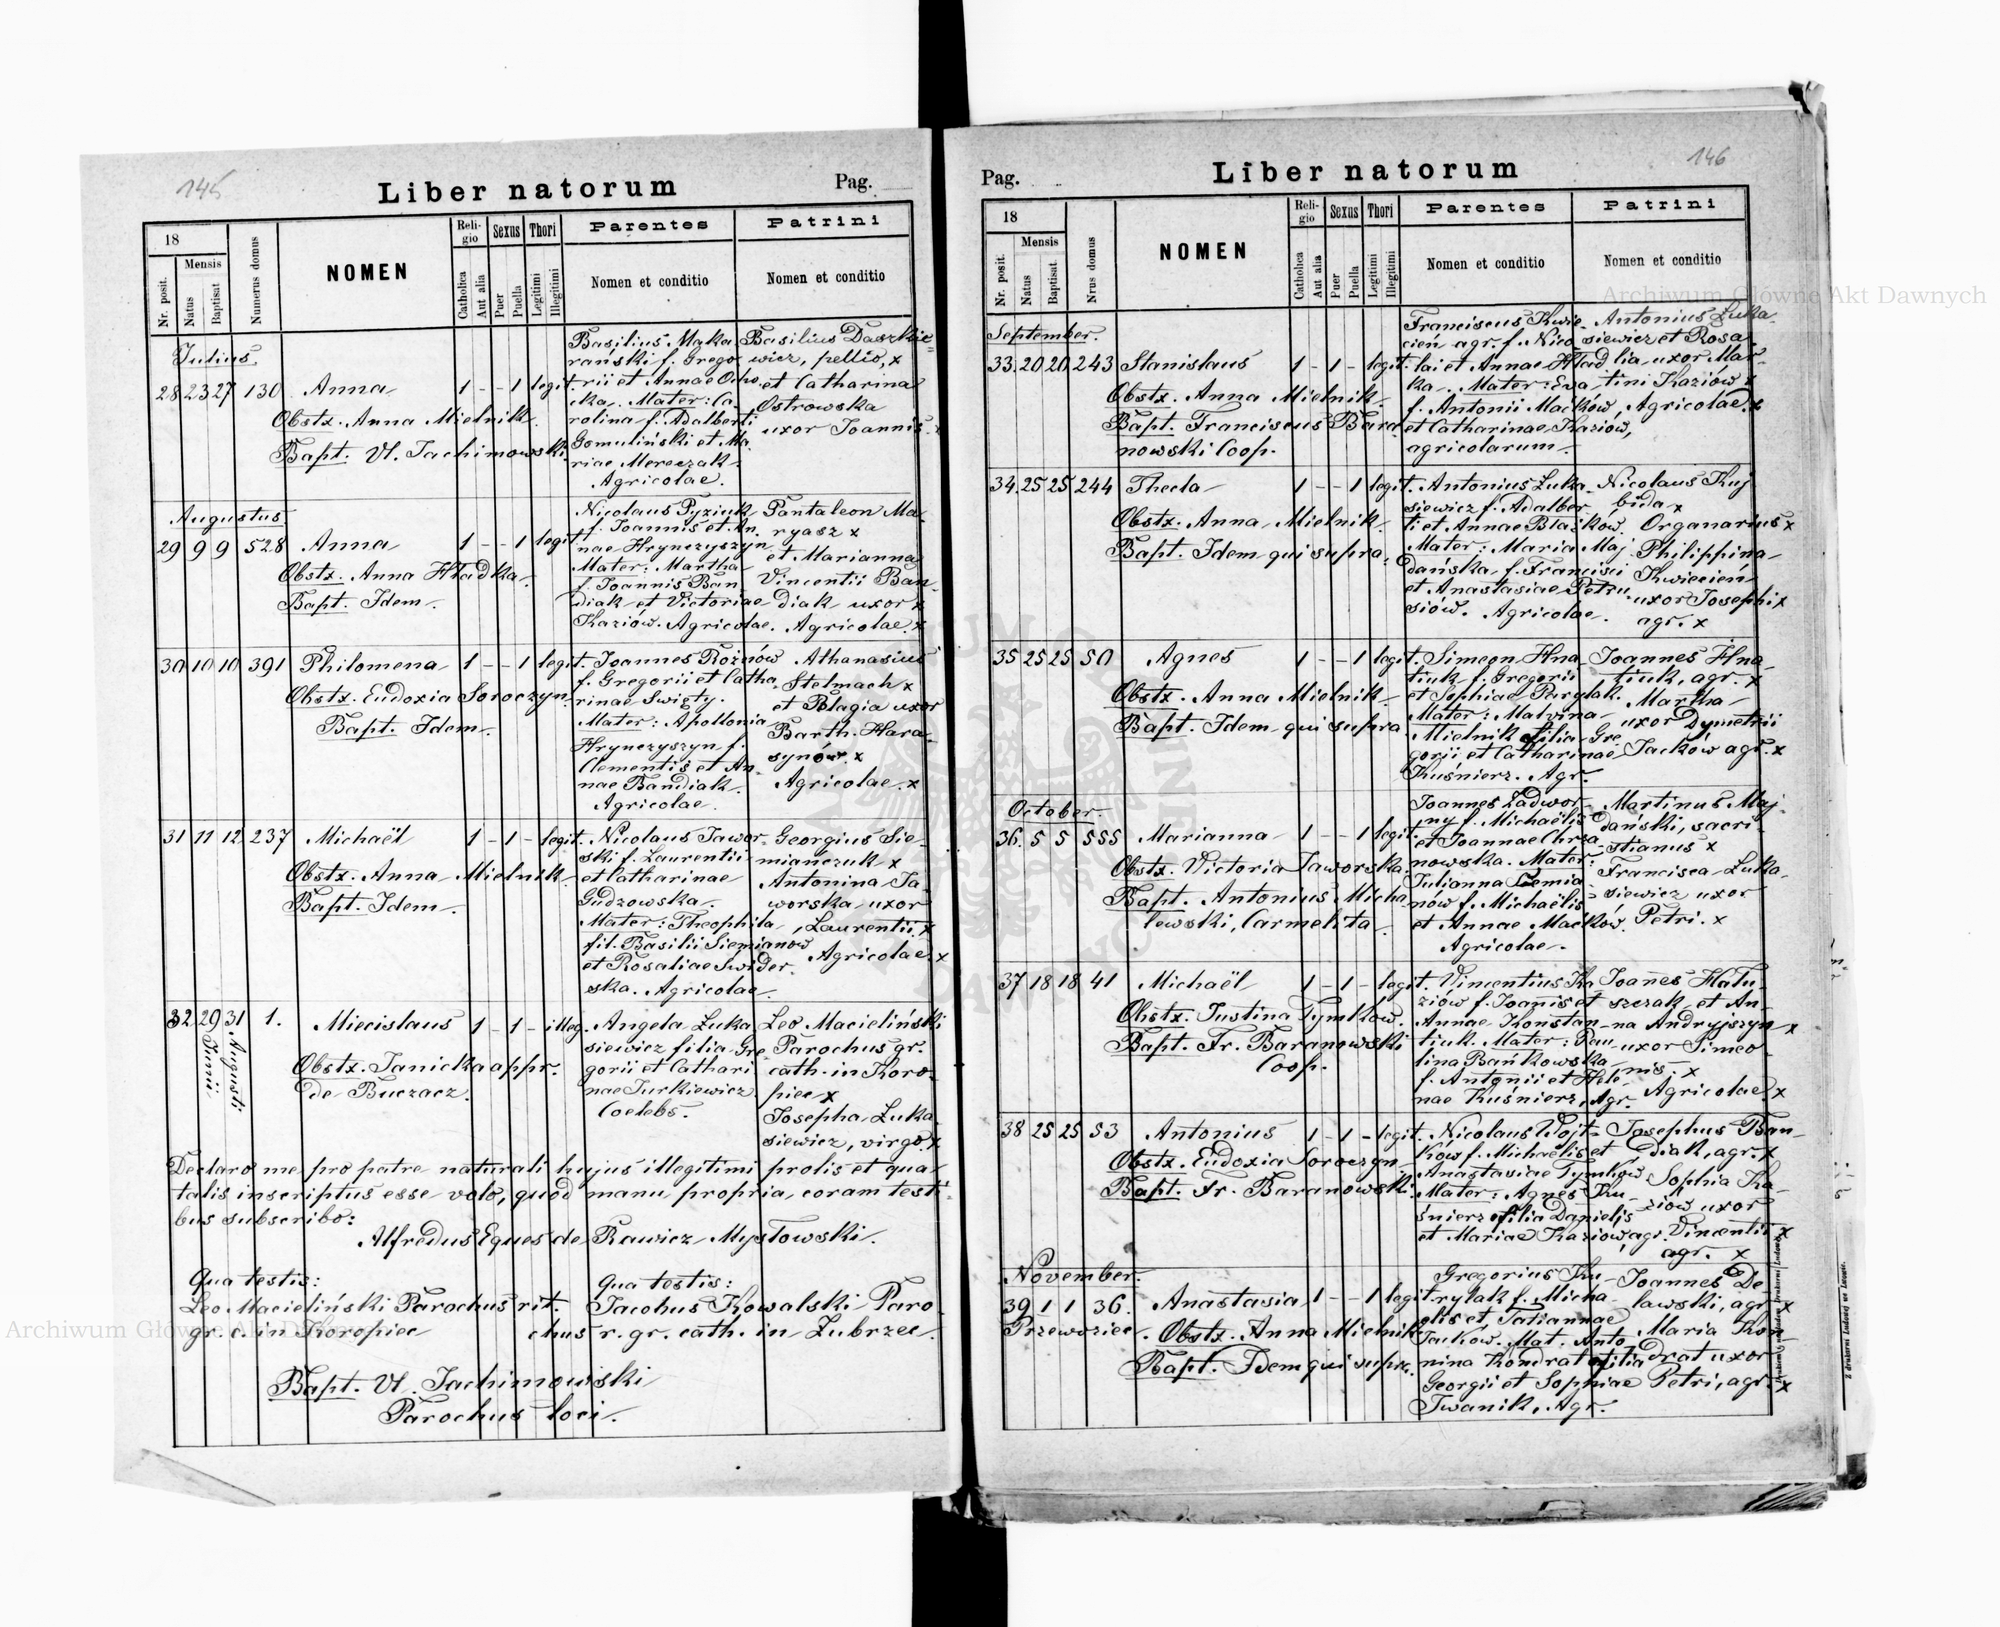 145
Liber natorum
Pag.
18
Mensis
Nr. posit.
Natus
Baptisat
Numerus domus
NOMEN
Reli-
gio
Catholica
Aut alia
Sexus
Puer
Puella
Thori
Legitimi
Illegitimi
Parentes
Nomen et conditio
Patrini
Nomen et conditio
Julius
28 23 27 130 Anna 1 - - 1 legit.
Obstx. Anna Mielnik.
Bapt. Vl. Jachimowski.
Basilius Maka
rański f. Grego
rii et Annae Ocho
cka. Mater: Ca-
rolina f. Adalberti
Gomuliński et Ma
riae Mereczak.
Agricolae.
Basilius Daszkie
wicz, pellio, x
et Catharina
Ostrowska
uxor Joannis. x
Augustus
29 9 9 528 Anna 1 - - 1 legit.
Obstx. Anna Hładka.
Bapt. Idem.
Nicolaus Pyziuk
f. Joannis et An
nae Hrynczyszyn
Mater: Martha
f. Joannis Ban
diak et Victoriae
Kaziów. Agricolae.
Pantaleon Ma-
ryasz x
et Marianna
Vincentii Ban
diak uxor x
Agricolae. x
30 10 10 391 Philomena 1 - - 1 legit.
Obstx. Eudoxia Soroczyn.
Bapt. Idem.
Joannes Rożnów
f. Gregorii et Catha
rinae Swięty.
Mater: Apollonia
Hrynczyszyn f.
Clementis et An-
nae Bandiak.
Agricolae.
Athanasius
Stelmach x
et Pelagia uxor
Barth. Hara-
synów. x
Agricolae. x
31 11 12 237 Michaël 1 - 1 - legit.
Obstx. Anna Mielnik.
Bapt. Idem.
Nicolaus Jawor-
ski f. Laurentii
et Catharinae
Gudzowska.
Mater: Theophila
fil. Basilii Siemianow
et Rosaliae Swider-
ska. Agricolae.
Georgius Sie-
miańczuk x
Antonina Ja-
worska uxor
Laurentii x
Agricolae. x
32 29 Junii 31 Augusti 1. Miecislaus 1 - 1 - illeg.
Obstx. Janicka appr.
de Buczacz.
Angela Łuka
siewicz filia Gre
gorii et Cathari
nae Turkiewicz
Coelebs.
Leo Macieliński
Parochus gr.
cath. in Koro-
piec x
Josepha Łuka
siewicz, virgo. x
Declaro me pro patre naturali hujus illegitimi prolis et qua
talis inscriptus esse volo, quod manu propria coram testi-
bus subscribo:
Alfredus Eques de Rawicz Mysłowski.
Qua testis:
Leo Macieliński Parochus rit.
gr. c. in Koropiec
Qua testis:
Jacobus Kowalski Paro-
chus r. gr. cath. in Zubrzec.
Bapt. Vl. Jachimowski
Parochus loci.
146
Pag.
Liber natorum
18
Mensis
Nr. posit.
Natus
Baptisat
Nrus domus
NOMEN
Reli-
gio
Catholica
Aut alia
Sexus
Puer
Puella
Thori
Legitimi
Illegitimi
Parentes
Nomen et conditio
Patrini
Nomen et conditio
September.
33. 20 20 243 Stanislaus 1 - 1 - legit.
Obstx. Anna Mielnik.
Bapt. Franciscus Bara
nowski Coop.
Franciscus Kwie-
cień agr. f. Nico
lai et Annae Hład
ka. Mater: Eva
f. Antonii Maćków,
et Catharinae Kaziów,
agricolarum.
Antonius Łuka
siewicz et Rosa
lia uxor Mar-
tini Kaziów x
Agricolae. x
34. 25 25 244 Thecla 1 - - 1 legit.
Obstx. Anna Mielnik.
Bapt. Idem qui supra.
Antonius Łuka
siewicz f. Adalber
ti et Annae Błażków.
Mater: Maria Maj
dańska f. Francisci
et Anastasiae Petru
siów. Agricolae.
Nicolaus Kuj
bida x
Organarius x
Philippina
Kwiecień
uxor Josephi x
agr. x
35 25 25 50 Agnes 1 - - 1 legit.
Obstx. Anna Mielnik.
Bapt. Idem qui supra.
Simeon Hna
tiuk f. Gregorii
et Sophiae Purylak.
Mater: Malvina
Mielnik filia Gre
gorii et Catharinae
Kuśnierz. Agr.
Joannes Hna
tiuk, agr. x
Martha
uxor Dymetrii
Jacków agr. x
October.
36. 5 5 555 Marianna 1 - - 1 legit.
Obstx. Victoria Jaworska.
Bapt. Antonius Micha
lewski, Carmelita.
Joannes Zadwor-
ny f. Michaëlis
et Joannae Chrza
nowska. Mater:
Julianna Ziemia
nów f. Michaëlis
et Annae Maćków.
Agricolae.
Martinus Maj
dański, sacri-
stianus x
Francisca Łuka
siewicz uxor
Petri. x
37 18 18 41 Michaël 1 - 1 - legit.
Obstx. Justina Tymków.
Bapt. Fr. Baranowski
Coop.
Vincentius Ka
ziów f. Joanis et
Annae Konstan
tiuk. Mater: Pau
lina Bańkowska
f. Antonii et Hele
nae Kuśnierz, Agr.
Joanes Matu-
szczak et An-
na Andryjszyn x
uxor Simeo-
nis. x
Agricolae x
38 25 25 53 Antonius 1 - 1 - legit.
Obstx. Eudoxia Soroczyn.
Bapt. Fr. Baranowski.
Nicolaus Wojt-
ków f. Michaëlis et
Anastasiae Tymków
Mater: Agnes Ku-
śnierz filia Danielis
et Mariae Kaziów, agr.
Josephus Ban-
diak, agr. x
Sophia Ka-
ziów uxor
Vincentii x
agr. x
November.
39 1 1 36. Anastasia 1 - - 1 legit.
Przewoziec. Obstx. Anna Mielnik
Bapt. Idem qui supra.
Gregorius Ku
rylak f. Micha
ëlis et Tatiannae
Jacków. Mat. Anto
nina Kondrat filia
Georgii et Sophiae
Iwanik, Agr.
Joannes De
lawski, agr. x
Maria Kon
drat uxor
Petri, agr. x
Z drukarni Ludowej we Lwowie.
Archiwum Główne Akt Dawnych
Archiwum Główne Akt Dawnych